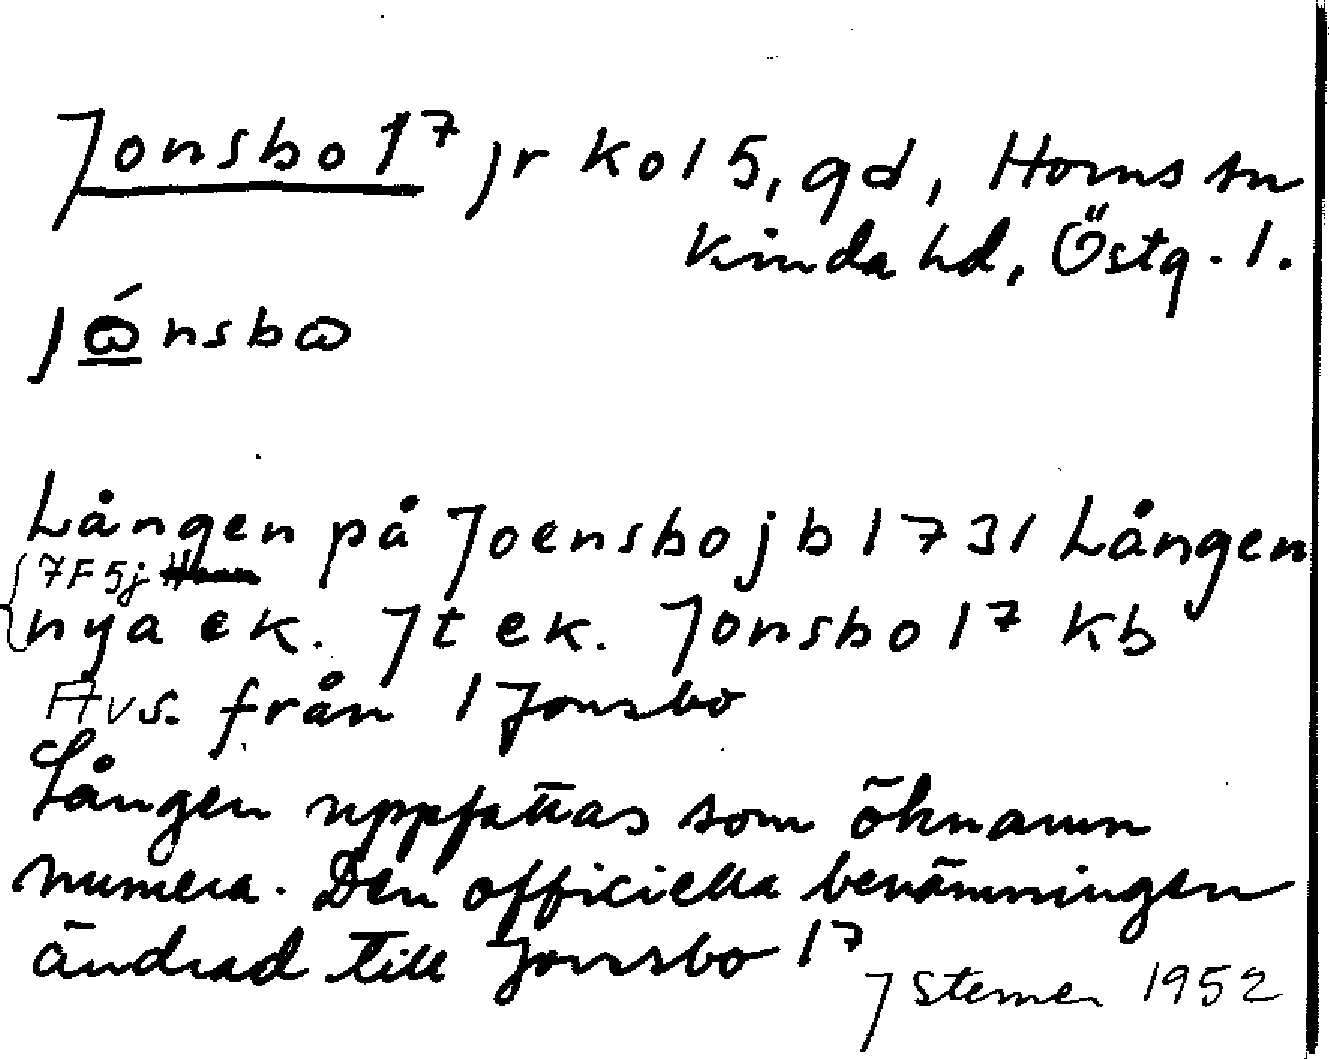 Jonsbo 1⁷ jr ko 1 5, gd, Horns sn
Kinda hd, Östg. l.
jώnsbω
Lången på Joensbo jb 1731 Lången
7 F 5j
nya ek. Jt ek. Jonsbo 1⁷ kb
Avs. från 1 Jonsbo
Lången uppfattas som öknamn
numera. Den officiella benämningen
ändrad till Jonsbo 1⁷
J Sterner 1952